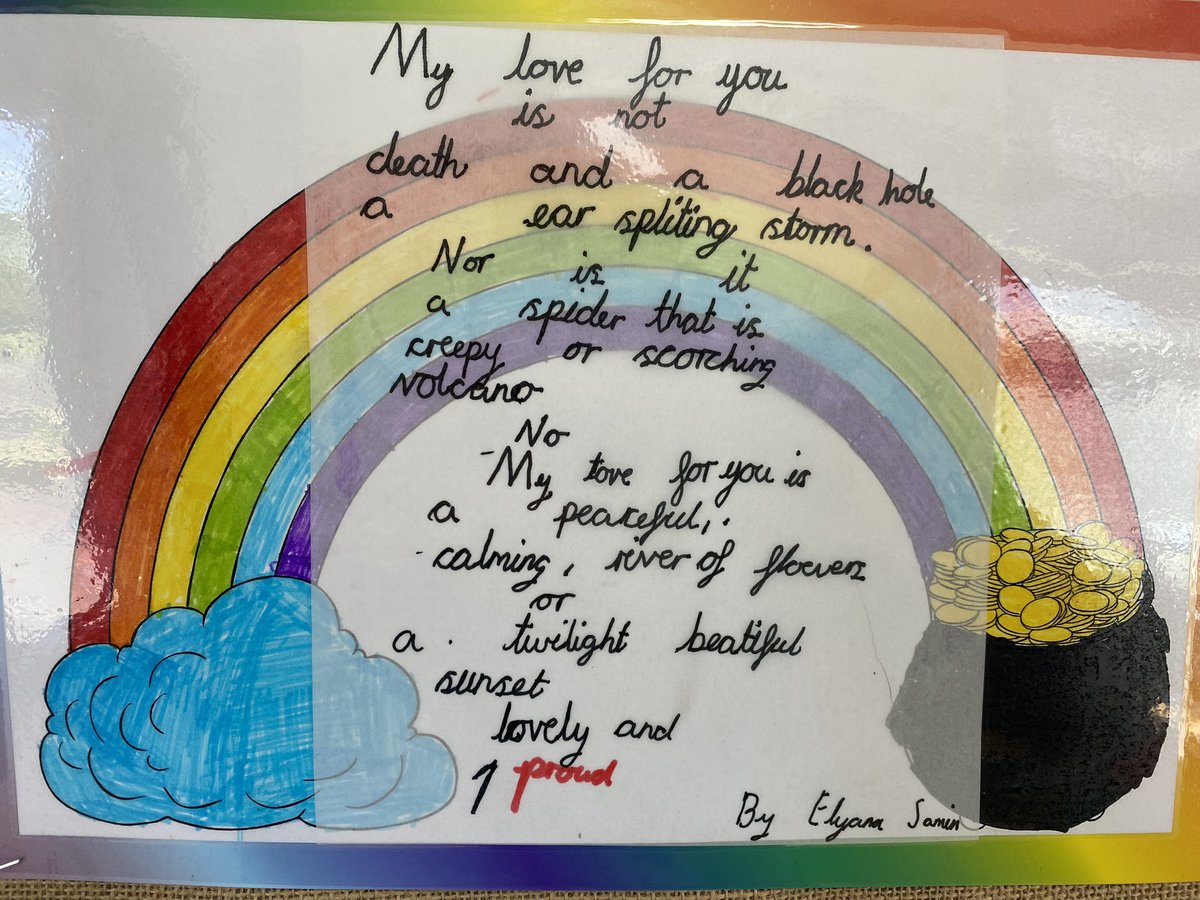 My love for you
is not
death and a black hole
a ear spliting storm.
Nor is it
a spider that is
creepy or scorching
volcano
No
My love for you is
a peaceful,.
calming, river of floevers
or
a. twilight beatiful
sunset
lovely and
proud
By Elyana Samin